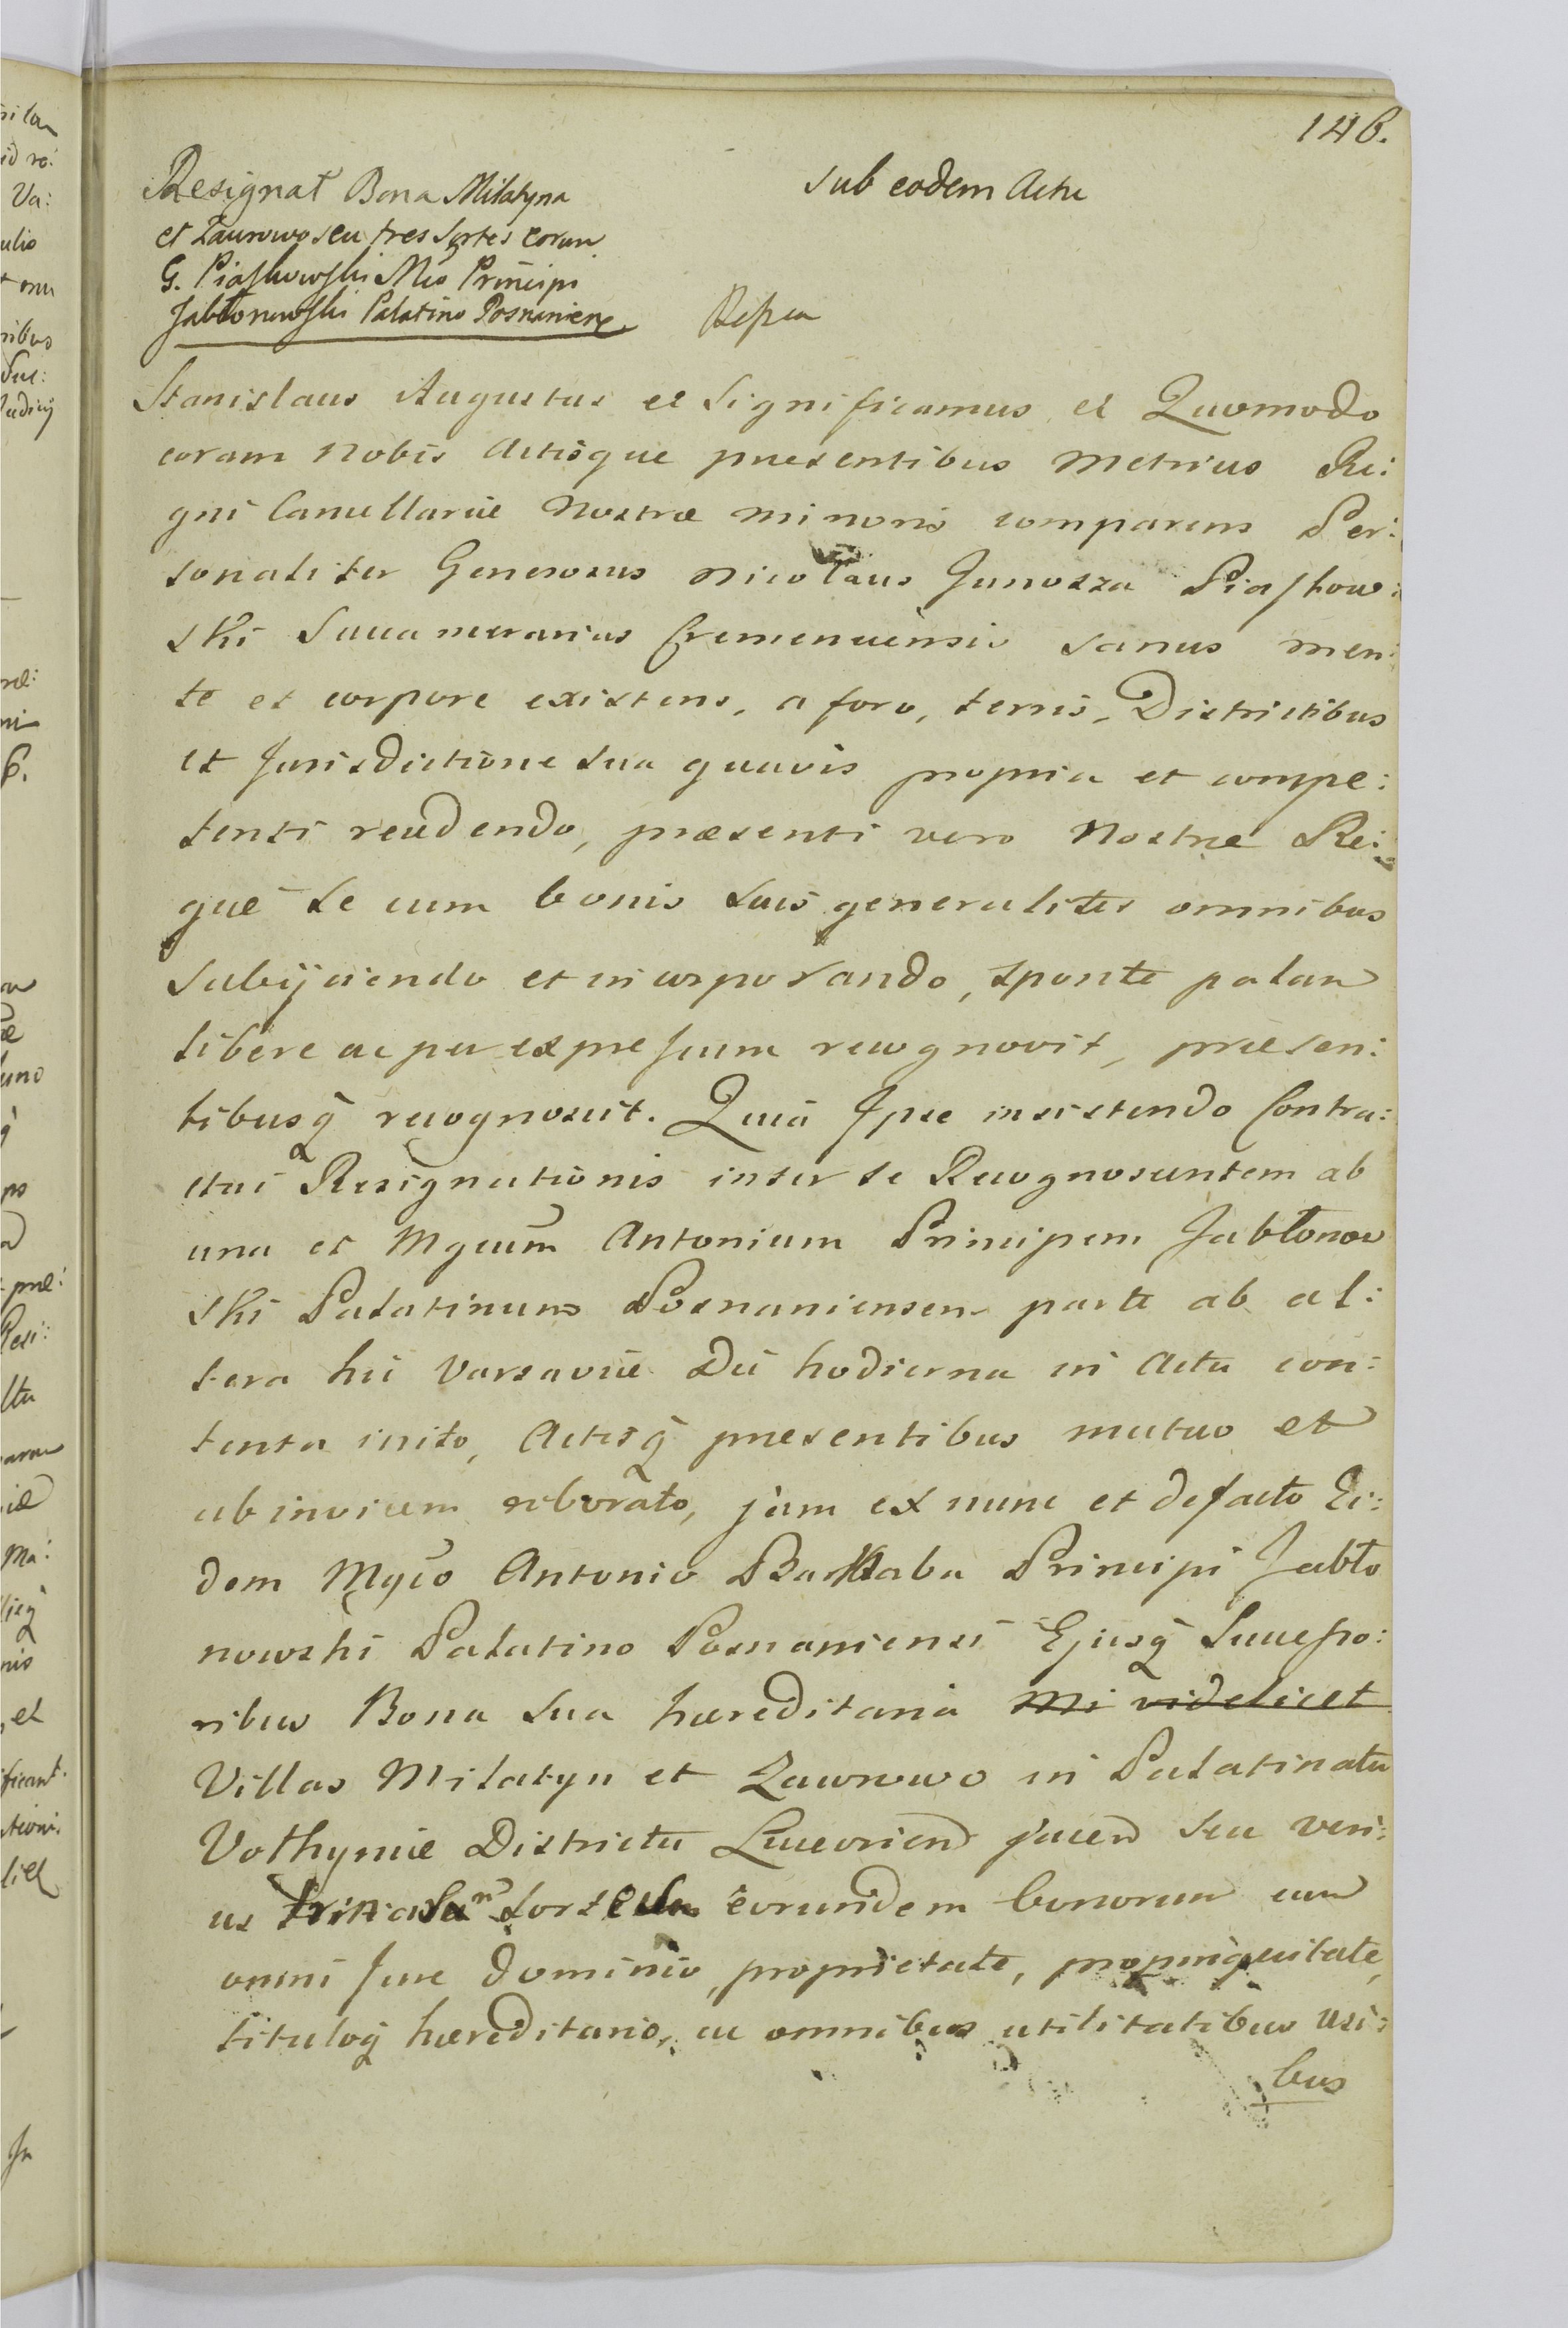 146.
Resignat Bona Milatyna
et Zaurowo seu tres Sortes eorum
G. Piaskowski Mco Principi
Jabłonowski Palatino Posnanien
sub eodem Actu
Stanislaus Augustus et Significamus et Quomodo
coram Nobis Actisque præsentibus Metrices Re:
gni Cancellariæ Nostræ minoris comparens Per:
sonaliter Generosus Nicolaus Junosza Piaskow:
ski Succamerarius Cremenecensis sanus men:
te et corpore existens, a foro, terris, Districtibus
et Jurisdictione sua quavis propria et compe:
tenti recedendo, præsenti vero Nostræ Re:
giæ se cum bonis suis generaliter omnibus
subijciendo et incorporando, sponte palam
libere ac per expressum recognovit, præsen:
tibusq recognoscit. Quia Ipse insistendo Contra:
ctui Resignationis inter se Recognoscentem ab
una et Mgcum Antonium Principem Jabłonow
ski Palatinum Posnaniensem parte ab al:
tera hic Varsaviæ Die hodierna in Actu con:
tenta inito, Actisq præsentibus mutuo et
ab invicem roborato, jam ex nunc et defacto Ei:
dem Mgco Antonio Barnaba Principi Jabło
nowski Palatino Posnaniensi Ejusq Successo:
ribus Bona sua hæreditaria Mi videlicet
Villas Milatyn et Zawrowo in Palatinatu
Volhyniæ Districtu Luceorien jacen seu veri:
us eorundem bonorum cum
omni Jure dominio, proprietate, propinquitate,
tituloq hæreditario, ac omnibus utilitatibus usi:
bus